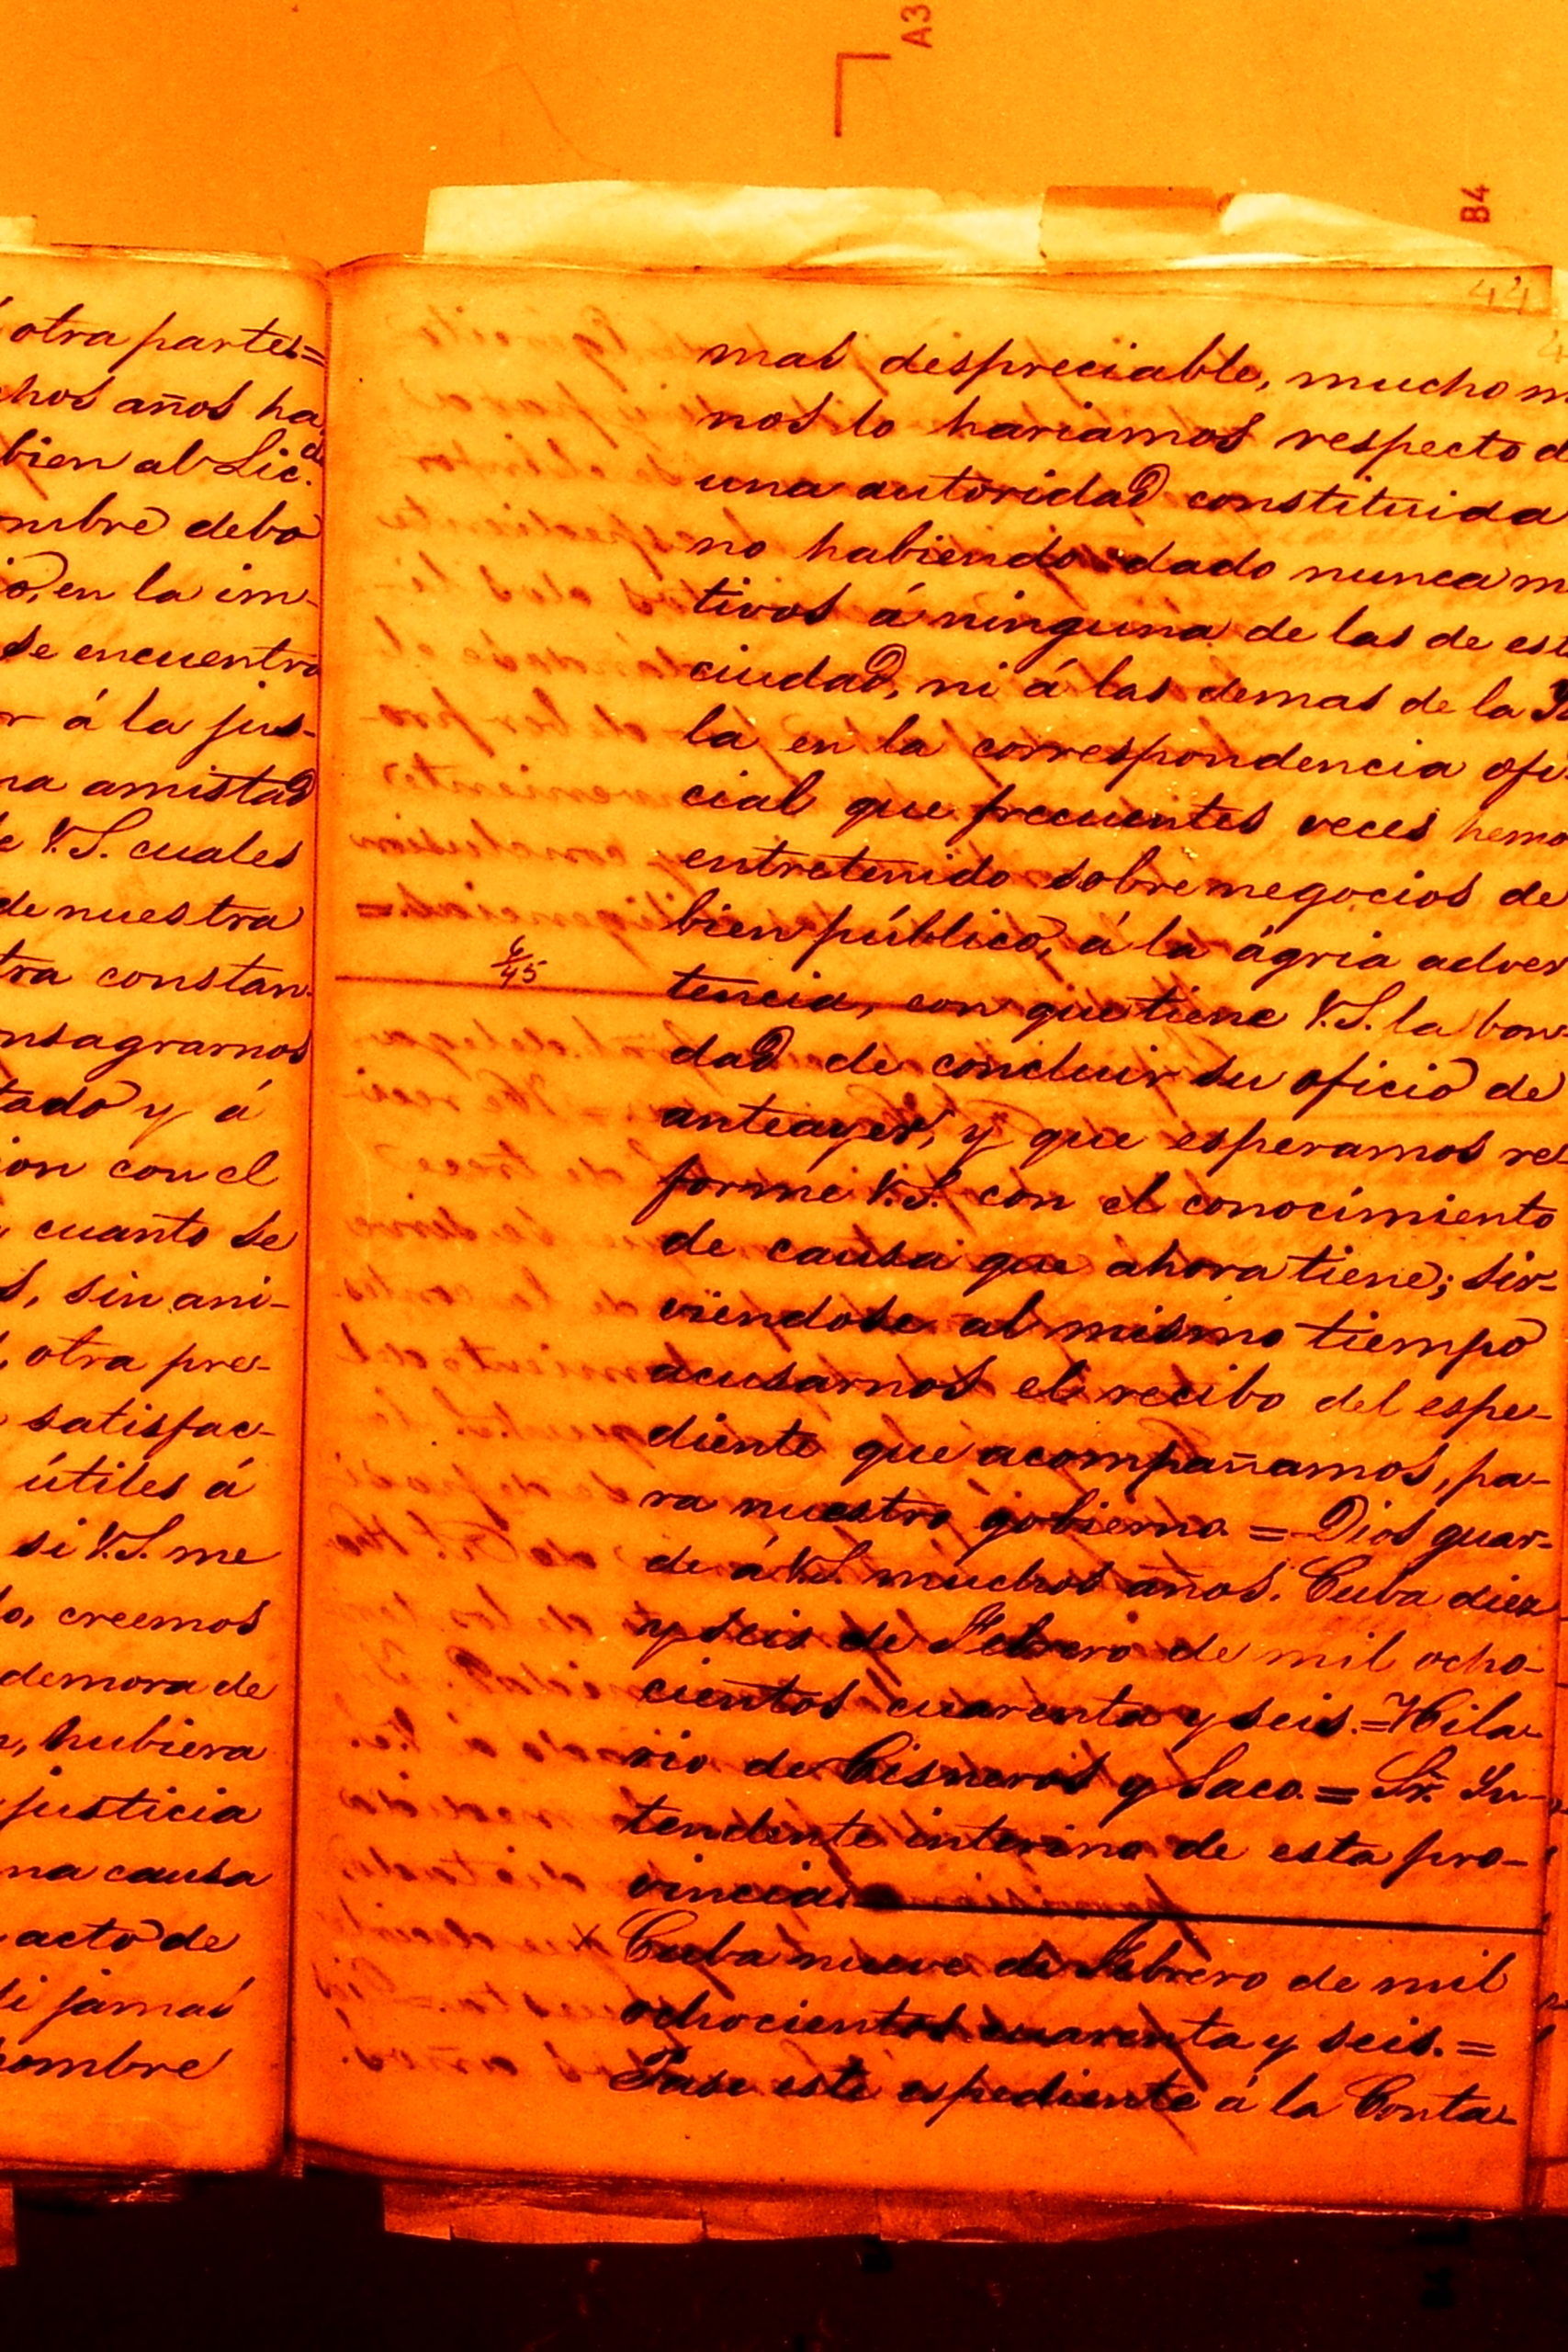 A3
B4
44
otra partes=
chos años ha
bien al Lic.do
ombre debo
en la im-
se encuentra
r á la jus-
na amistad
V.S. cuales
de nuestra
tra constan-
nsagrarnos
tado y á
ion con el
cuanto se
s, sin ani-
otra pre-
satisfac-
útiles á
si V.S. me
creemos
demora de
hubiera
justicia
na causa
acto de
di jamas
ombre
mas despreciable, mucho m
nos lo hariamos respecto d
una autoridad constituida
no habiendo dado nunca m
tivos á ninguna de las de est
ciudad, ni á las demas de la Is
la en la correspondencia ofi
cial que frecuentes veces hemo
entretenido sobre negocios de
bien público, á la ágria adver
6/45
tencia, con que tiene V.S. la bon-
dad de concluir su oficio de
anteayer, y que esperamos re
forme V.S. con el conocimiento
de causa que ahora tiene; sir-
viéndose al mismo tiempo
acusarnos el recibo del espe-
diente que acompañamos, pa-
ra nuestro gobierno = Dios guar-
de á V.S. muchos años. Cuba diez
y seis de Febrero de mil ocho-
cientos cuarenta y seis. = Hila-
rio de Cisneros y Saco. = Sr. In-
tendente interino de esta pro-
vincia.
× Cuba nueve de Febrero de mil
ochocientos cuarenta y seis. =
Pase este espediente á la Conta-